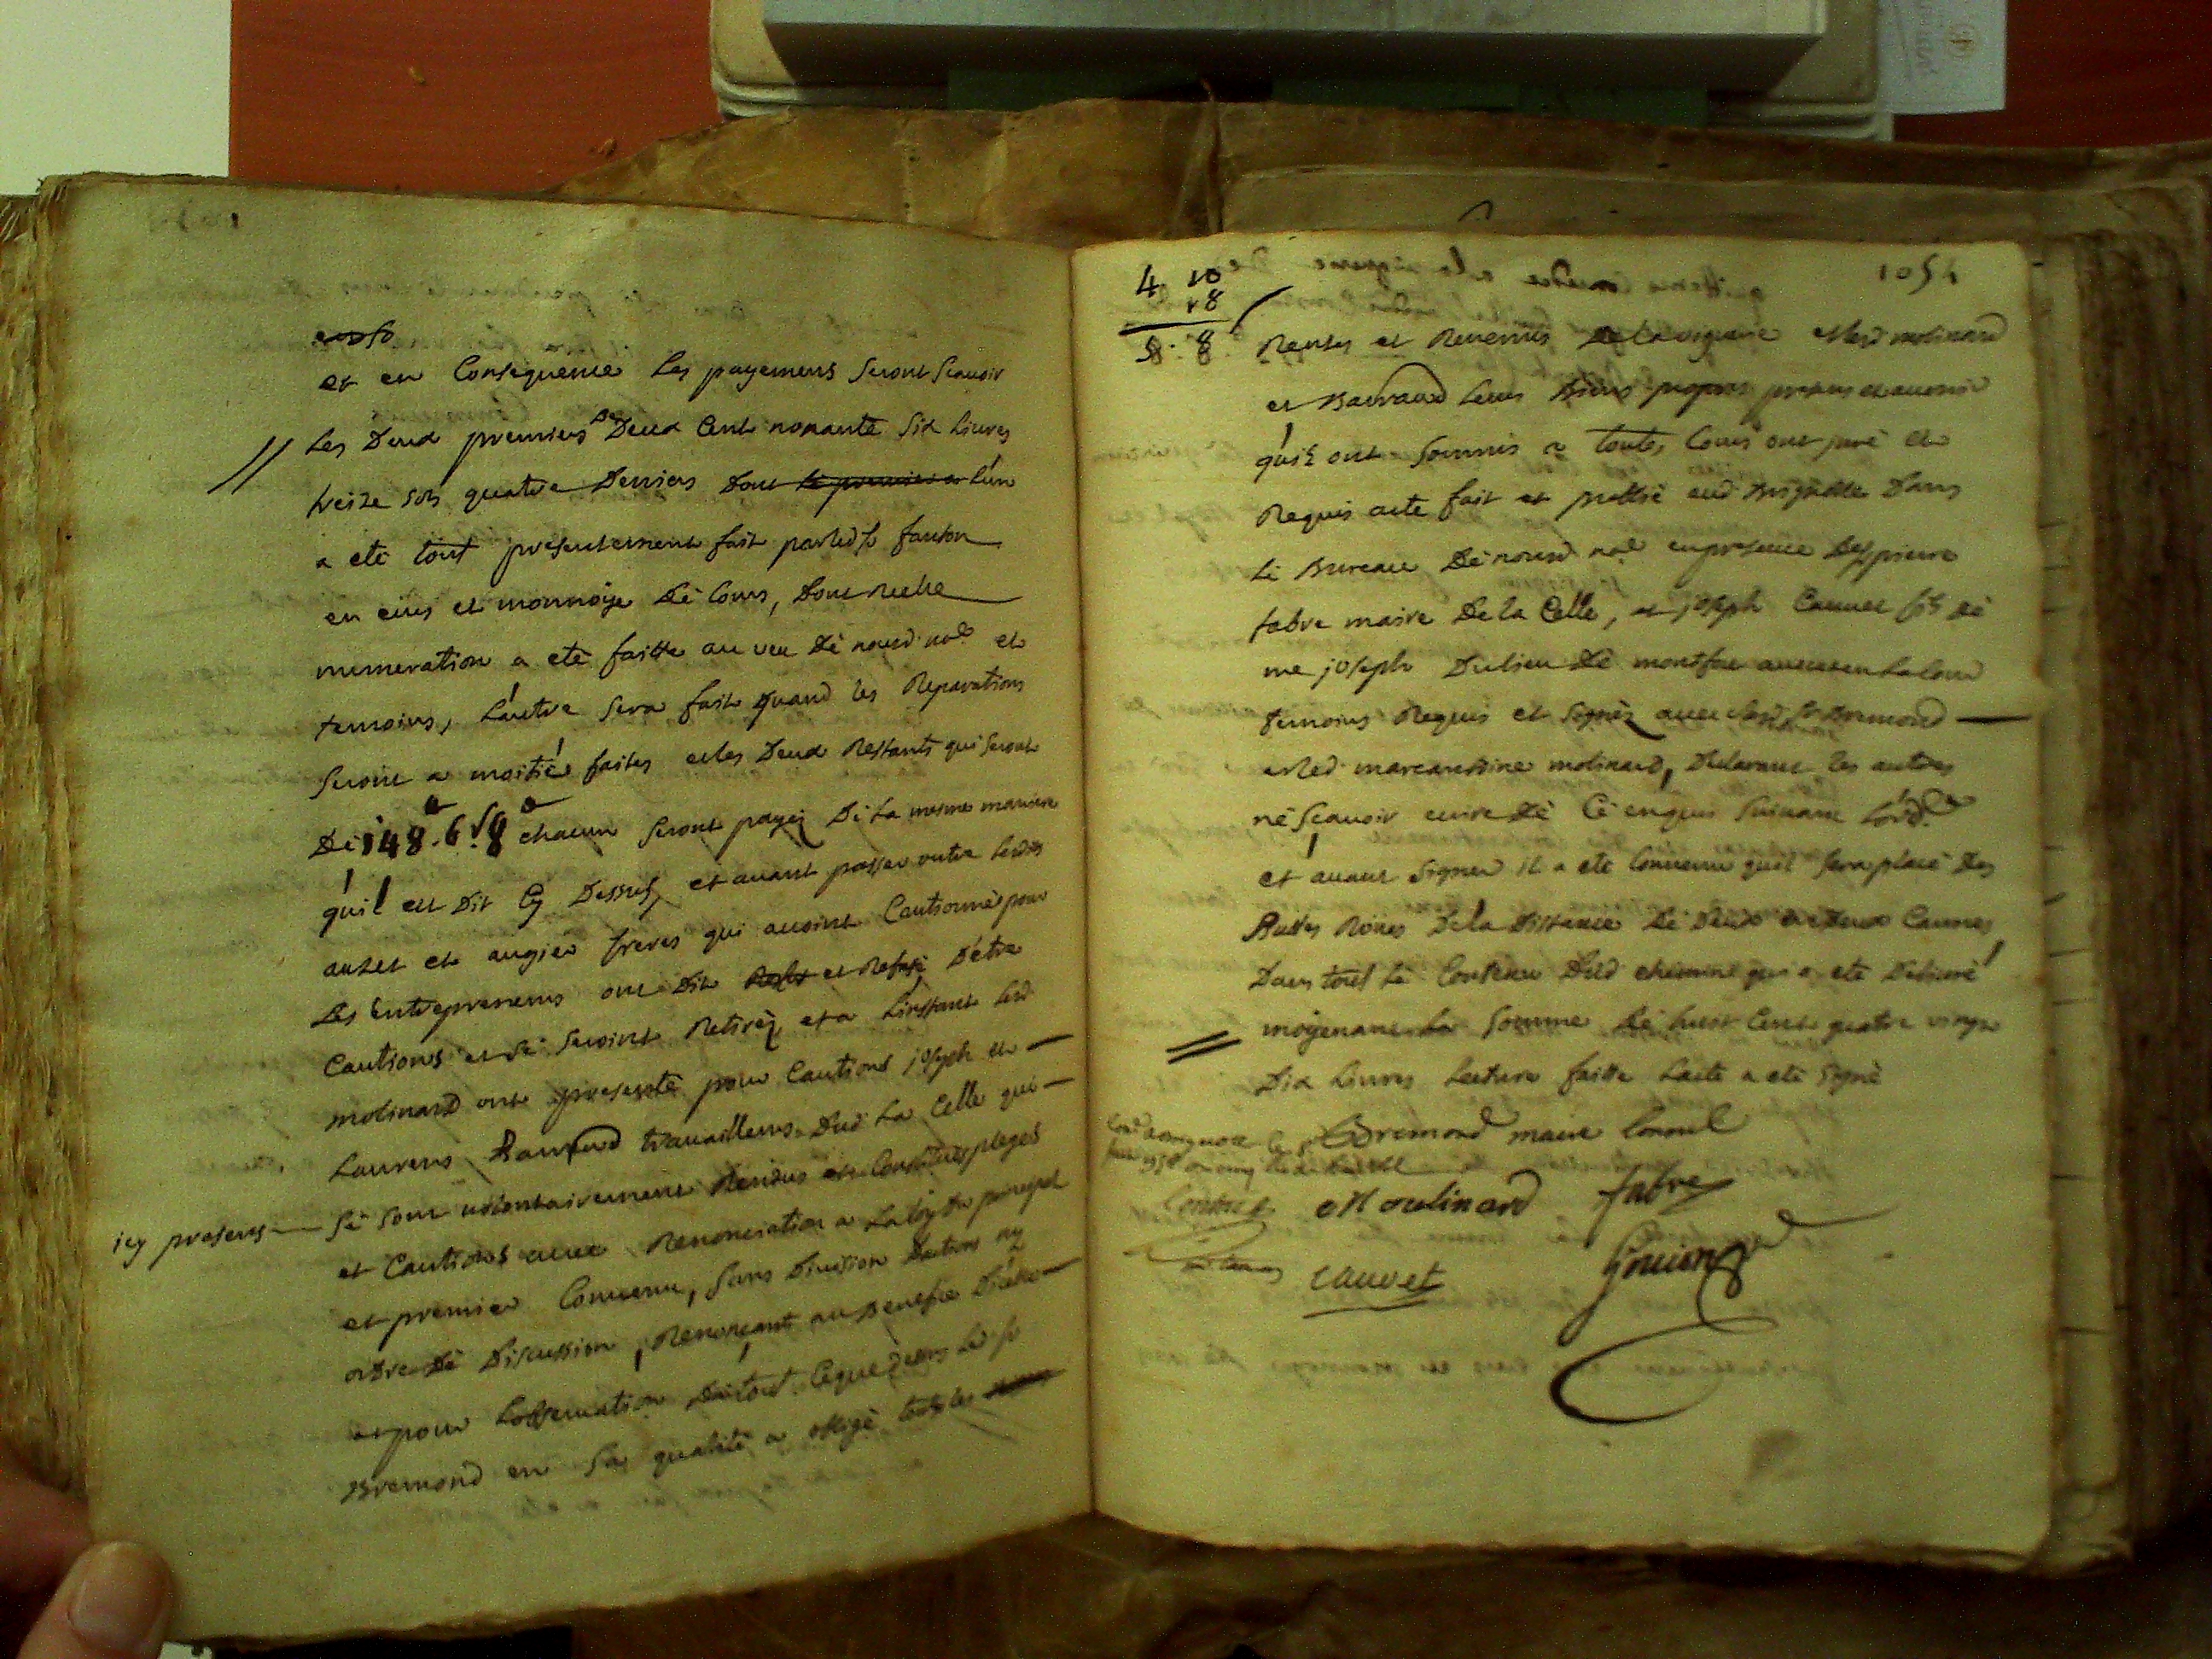 et en Consequence Les payemens seront scavoir
Les Deux premiers de Deux Cent nonante six Livres
treize sols quatre Deniers Dont le premier a L'un
a eté tout presentement fait par led sr fauton
en ecus et monnoye de Cours, Dont Reelle
numeration a eté faitte au veu dé nousd. nore et
temoins, L'autre sera fait quand les Reparations
seront a moitié faites et les Deux Restants qui seront
De 148. 6s 8d chacun seront payéz dé La mesme maniere
qu'il est Dit Cy Dessus, et avant passer outre lesdits
auzet et augier freres qui avoint Cautionné pour
Les Entrepreneurs ont Dit et Refusé D'etre
Cautions et sé seroint Retiréz et a L'instant lesd
molinard ont presenté pour Cautions joseph et
Laurens Barraud travailleurs Dud La Celle qui
icy presens
sé sont volontairement Rendus et Constitués pleges
et Cautions avec Renonciation a La Loy du principal
et premier Convenu, sans Division Dactions ny
ordre dé Discussion, Renonçant au Benefice D'icelle
et pour L'observation dé tout Ceque dessus Lé sr
Bremond en sa qualité a obligé touts les
1054
4 10
18
5. 8
Rentes et Revenus De la viguerie et lesd molinard
et Barraud Leurs Biens propres presens et avenir
qu'ils ont soumis a toutes Cours ont juré et
Requis acte fait et publié aud Brignolle Dans
Lé Bureau Dé nousd. nore en presence Des srs pierre
fabre maire De la Celle, et joseph Cauvet fils dé
me joseph Du lieu dé montfort
temoins Requis et signéz avec led sr Bremond
et led molinard, Declarant les autres
né scavoir ecrire dé Cé enquis suivant L'ordce
et avant signer il a eté Convenu quil sera placé Des
Buttes Roües De la Distance dé Deux en Deux Cannes
Dans tout Lé Contenu Dud chemin qui a eté Delivré
moyenant La somme dé huit Cent quatre vingt
Dix Livres Lecture faitte Lacte a eté signé
Bremond maire Consul
Moulinard fabre
Cauvet Gouion